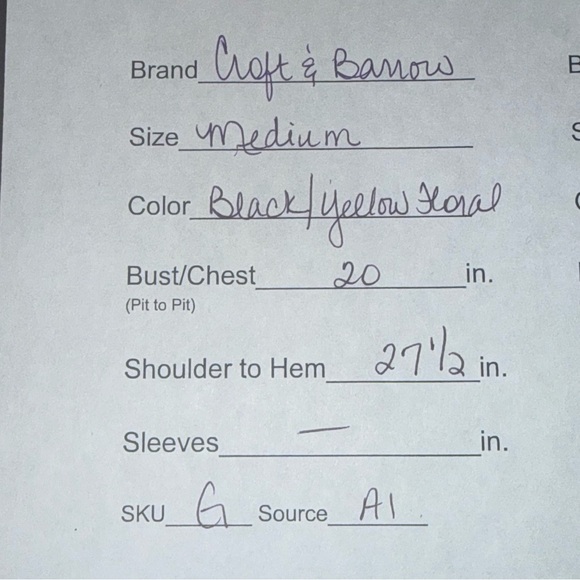 Brand Croft & Barrow
Size Medium
Color Black/Yellow Floral
Bust/Chest 20 in.
(Pit to Pit)
Shoulder to Hem 27 1/2 in.
Sleeves — in.
SKU G Source A1